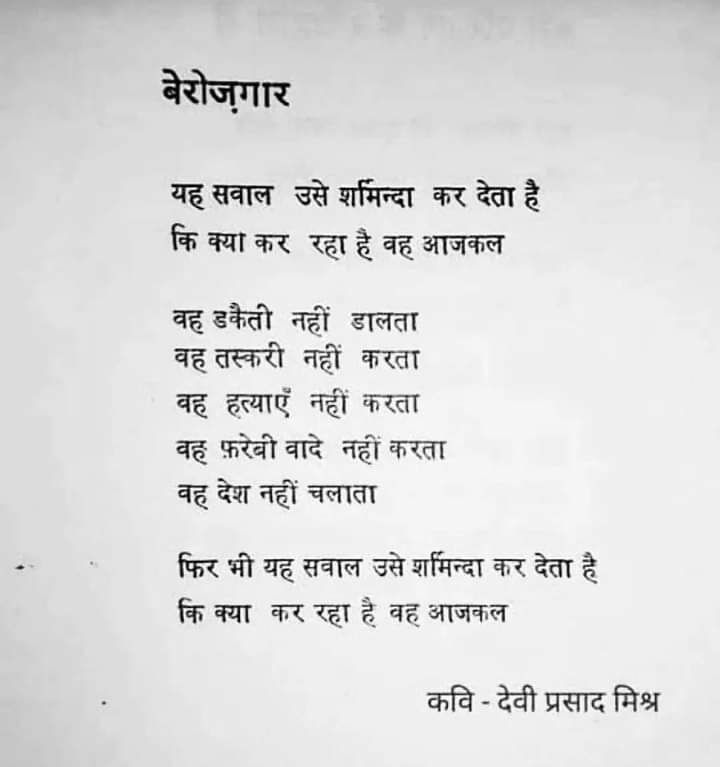 बेरोज़गार
यह सवाल उसे शर्मिन्दा कर देता है
कि क्या कर रहा है वह आजकल
वह डकैती नहीं डालता
वह तस्करी नहीं करता
वह हत्याएँ नहीं करता
वह फ़रेबी वादे नहीं करता
वह देश नहीं चलाता
फिर भी यह सवाल उसे शर्मिन्दा कर देता है
कि क्या कर रहा है वह आजकल
कवि - देवी प्रसाद मिश्र